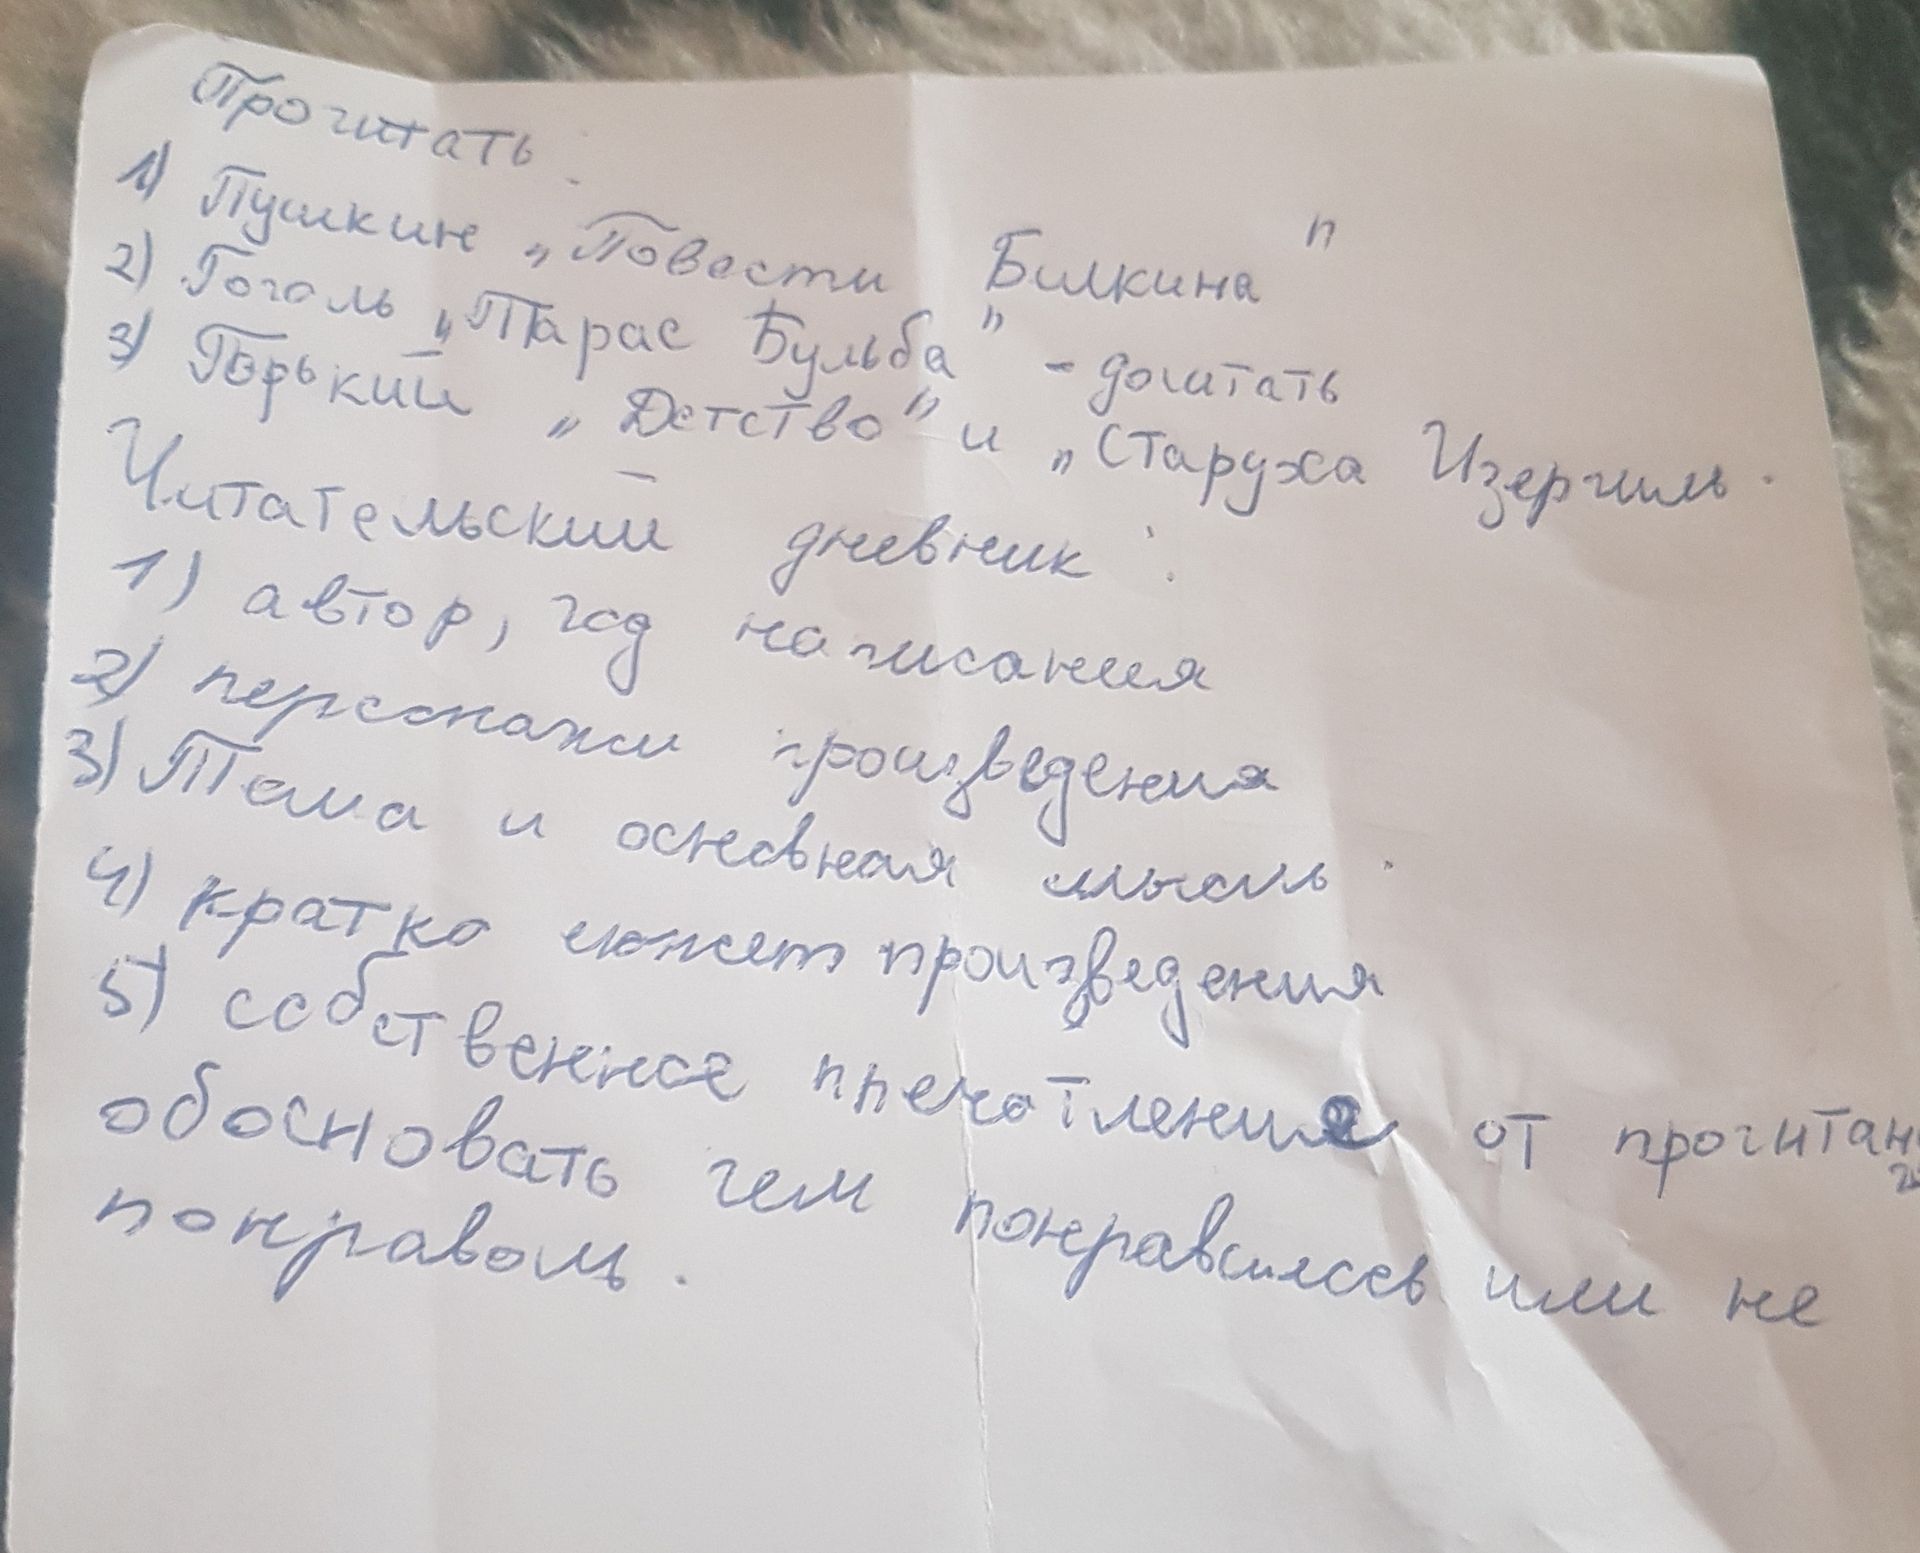 Прочитать:
1) Пушкин „Повести Билкина"
2) Гоголь „Тарас Бульба" - дочитать
3) Горький „Детство" и „Старуха Изергиль.
Читательский дневник:
1) автор, год написания
2) персонажи произведения
3) Тема и основная мысль.
4) кратко сюжет произведения
5) собственное ппечатления от прочитанно
го
обосновать чем понравилось или не
понраволь.